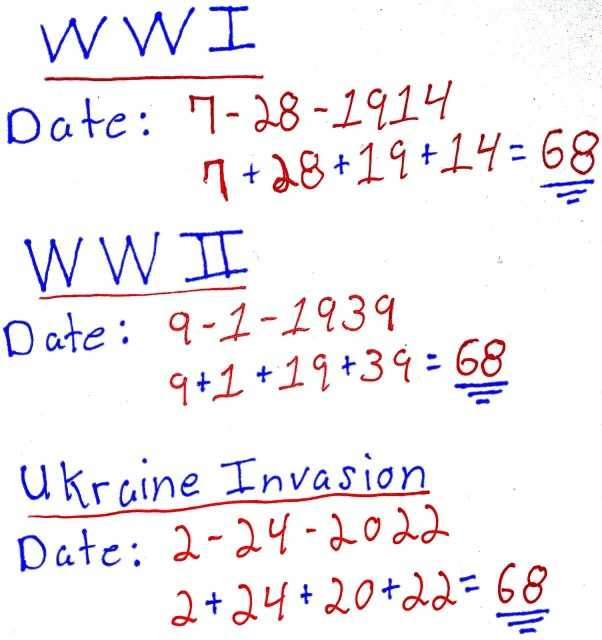 WWI
Date: 7-28-1914
7+28+19+14=68
WWII
Date: 9-1-1939
9+1+19+39=68
Ukraine Invasion
Date: 2-24-2022
2+24+20+22=68